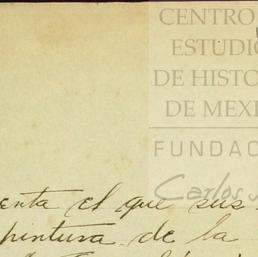 CENTRO
ESTUDIO
DE HISTO
DE MEXI
FUNDAC
Carlos
enta el que sus
pintura de la